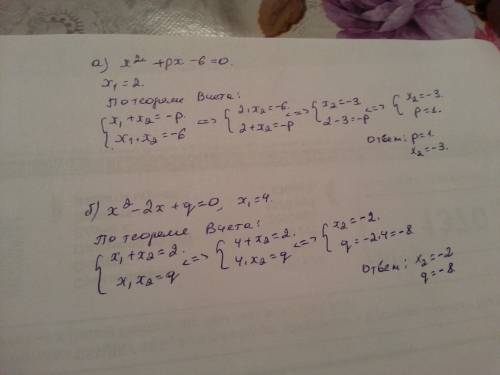 а) x² + px - 6 = 0.
x₁ = 2.
По теореме Виета:
{ x₁ + x₂ = -p. x₁ · x₂ = -6 <=> { 2 · x₂ = -6. 2 + x₂ = -p <=> { x₂ = -3 2 - 3 = -p <=> { x₂ = -3. p = 1.
Ответ: p = 1.
x₂ = -3.
б) x² - 2x + q = 0, x₁ = 4.
По теореме Виета:
{ x₁ + x₂ = 2. x₁ x₂ = q <=> { 4 + x₂ = 2. 4 · x₂ = q <=> { x₂ = -2. q = -2·4 = -8
Ответ: x₂ = -2
q = -8